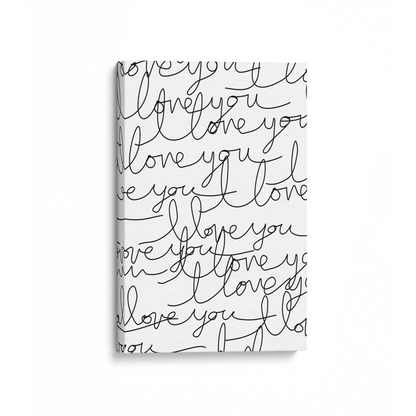 love you I l
I love you
I love you
I love you
ve you I love
I love you
love you
I love you
I love y
I love you
I love
you